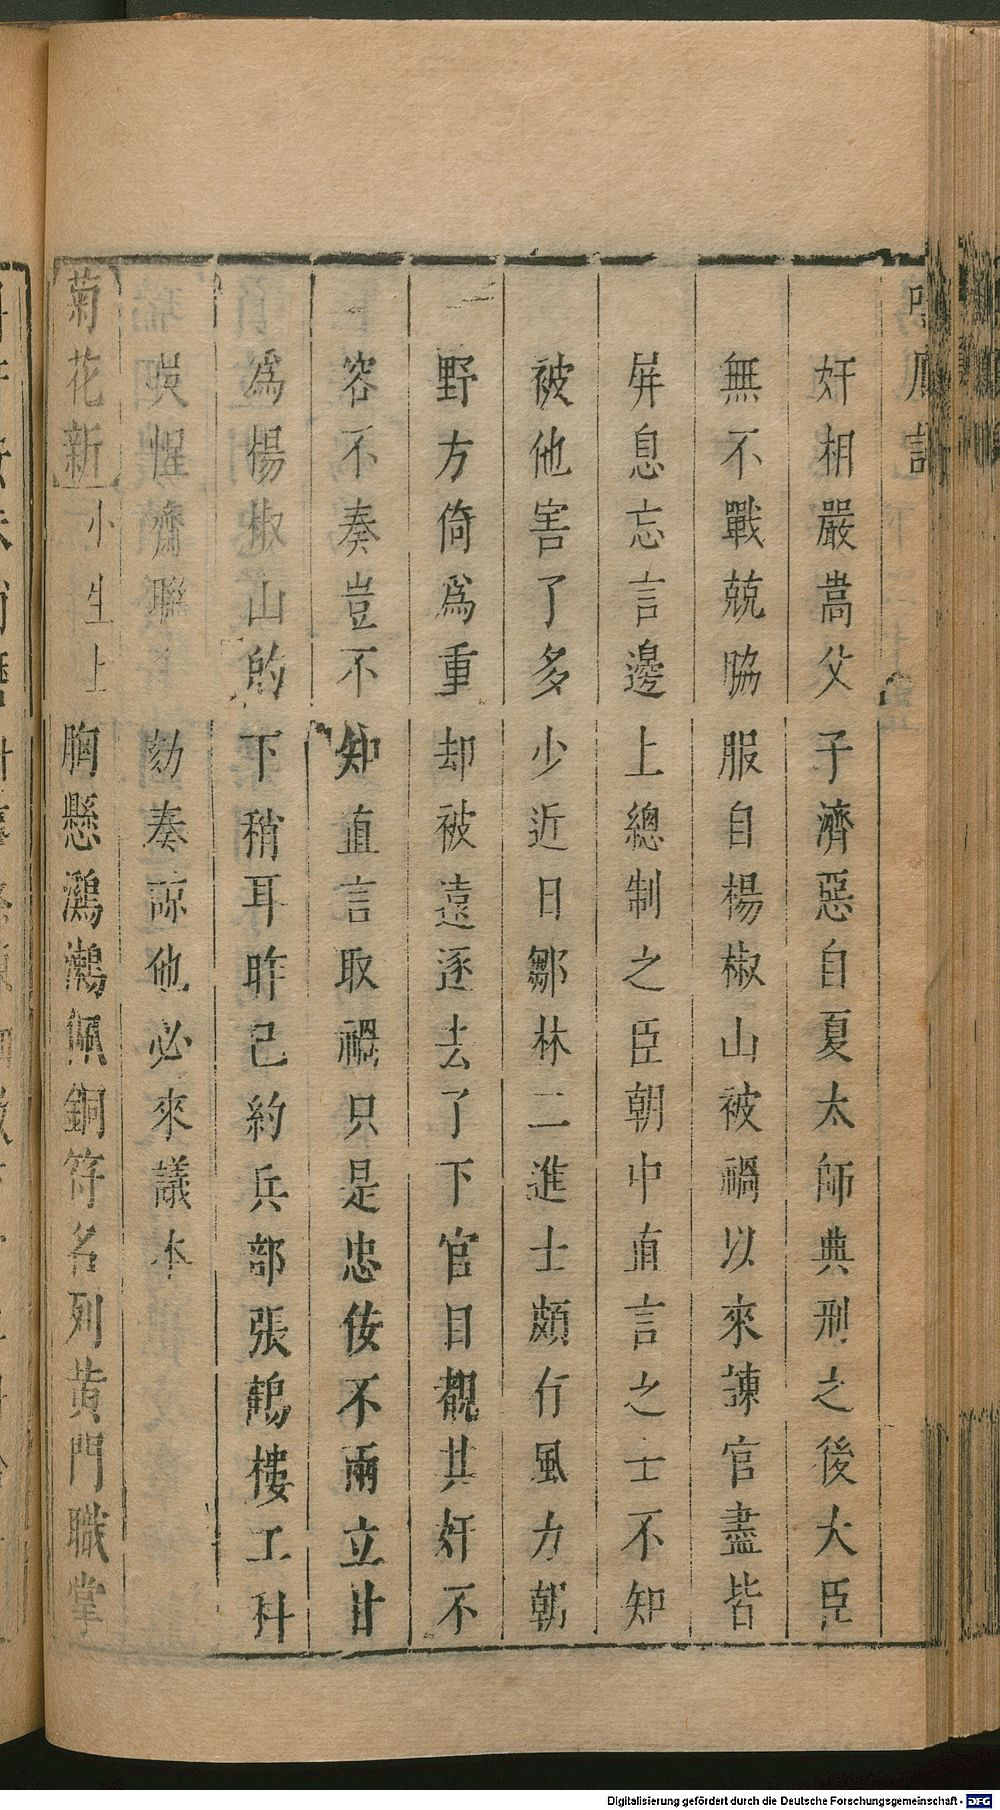 鳴鳳記
奸相嚴嵩父子濟惡自夏太師典刑之後大臣
無不戰兢脇服自楊椒山被禍以來諫官盡皆
屏息忘言邊上總制之臣朝中直言之士不知
被他害了多少近日鄒林二進士頗行風力朝
野方倚爲重却被遠逐去了下官目覩其奸不
容不奏豈不知直言取禍只是忠佞不兩立甘
爲楊椒山的下稍耳昨已約兵部張鶴樓工科
吳惺齋聯劾奏諒他必來議本
菊花新 小生上 胸懸鸂鶒佩銅符名列黄門職掌
Digitalisierung gefördert durch die Deutsche Forschungsgemeinschaft - DFG